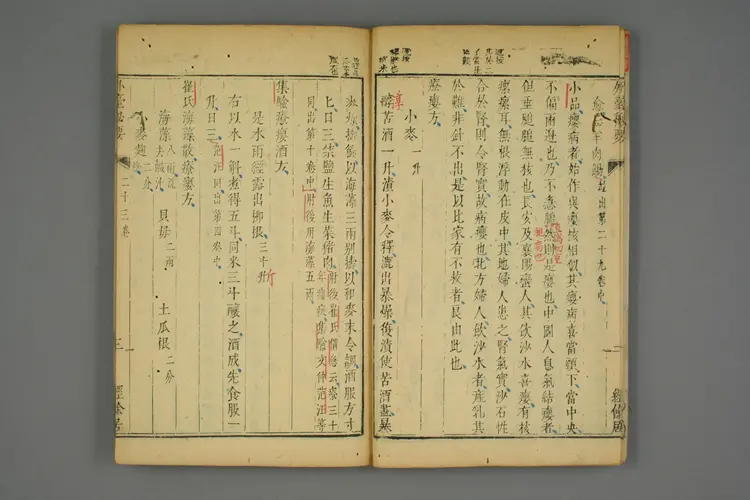 小品瘿病者始作與瘿核相似其瘿病喜當頸下當中央
不偏兩邊也乃不急膇然則是瘿也中國人息氣結瘿者
但垂膇膇無核也長安及襄陽蠻人其飲沙水喜瘿有核
瘰瘰耳無根浮動在皮中其地婦人患之腎氣實沙石性
合於腎則令腎實故病瘿也北方婦人飲沙水者產乳其
於難非針不出是以比家有不救者良由此也
療瘿方
小麥一升
淳苦酒一升漬小麥令釋漉出暴燥復漬使苦酒盡暴
麥燥擣篩以海藻三兩別擣以和麥末令調酒服方寸
匕日三禁鹽生魚生菜猪肉
同出第十卷中肘後用海藻五兩
集驗療瘿酒方
是水雨經露出柳根三十斤
右以水一斛煮得五斗同米三斗釀之酒成先食服一
升日三范汪同出第四卷中
崔氏海藻散療瘿方
海藻八兩洗去鹹汁 貝母二兩 土瓜根二分
麥麴二分
二十三卷
經餘居